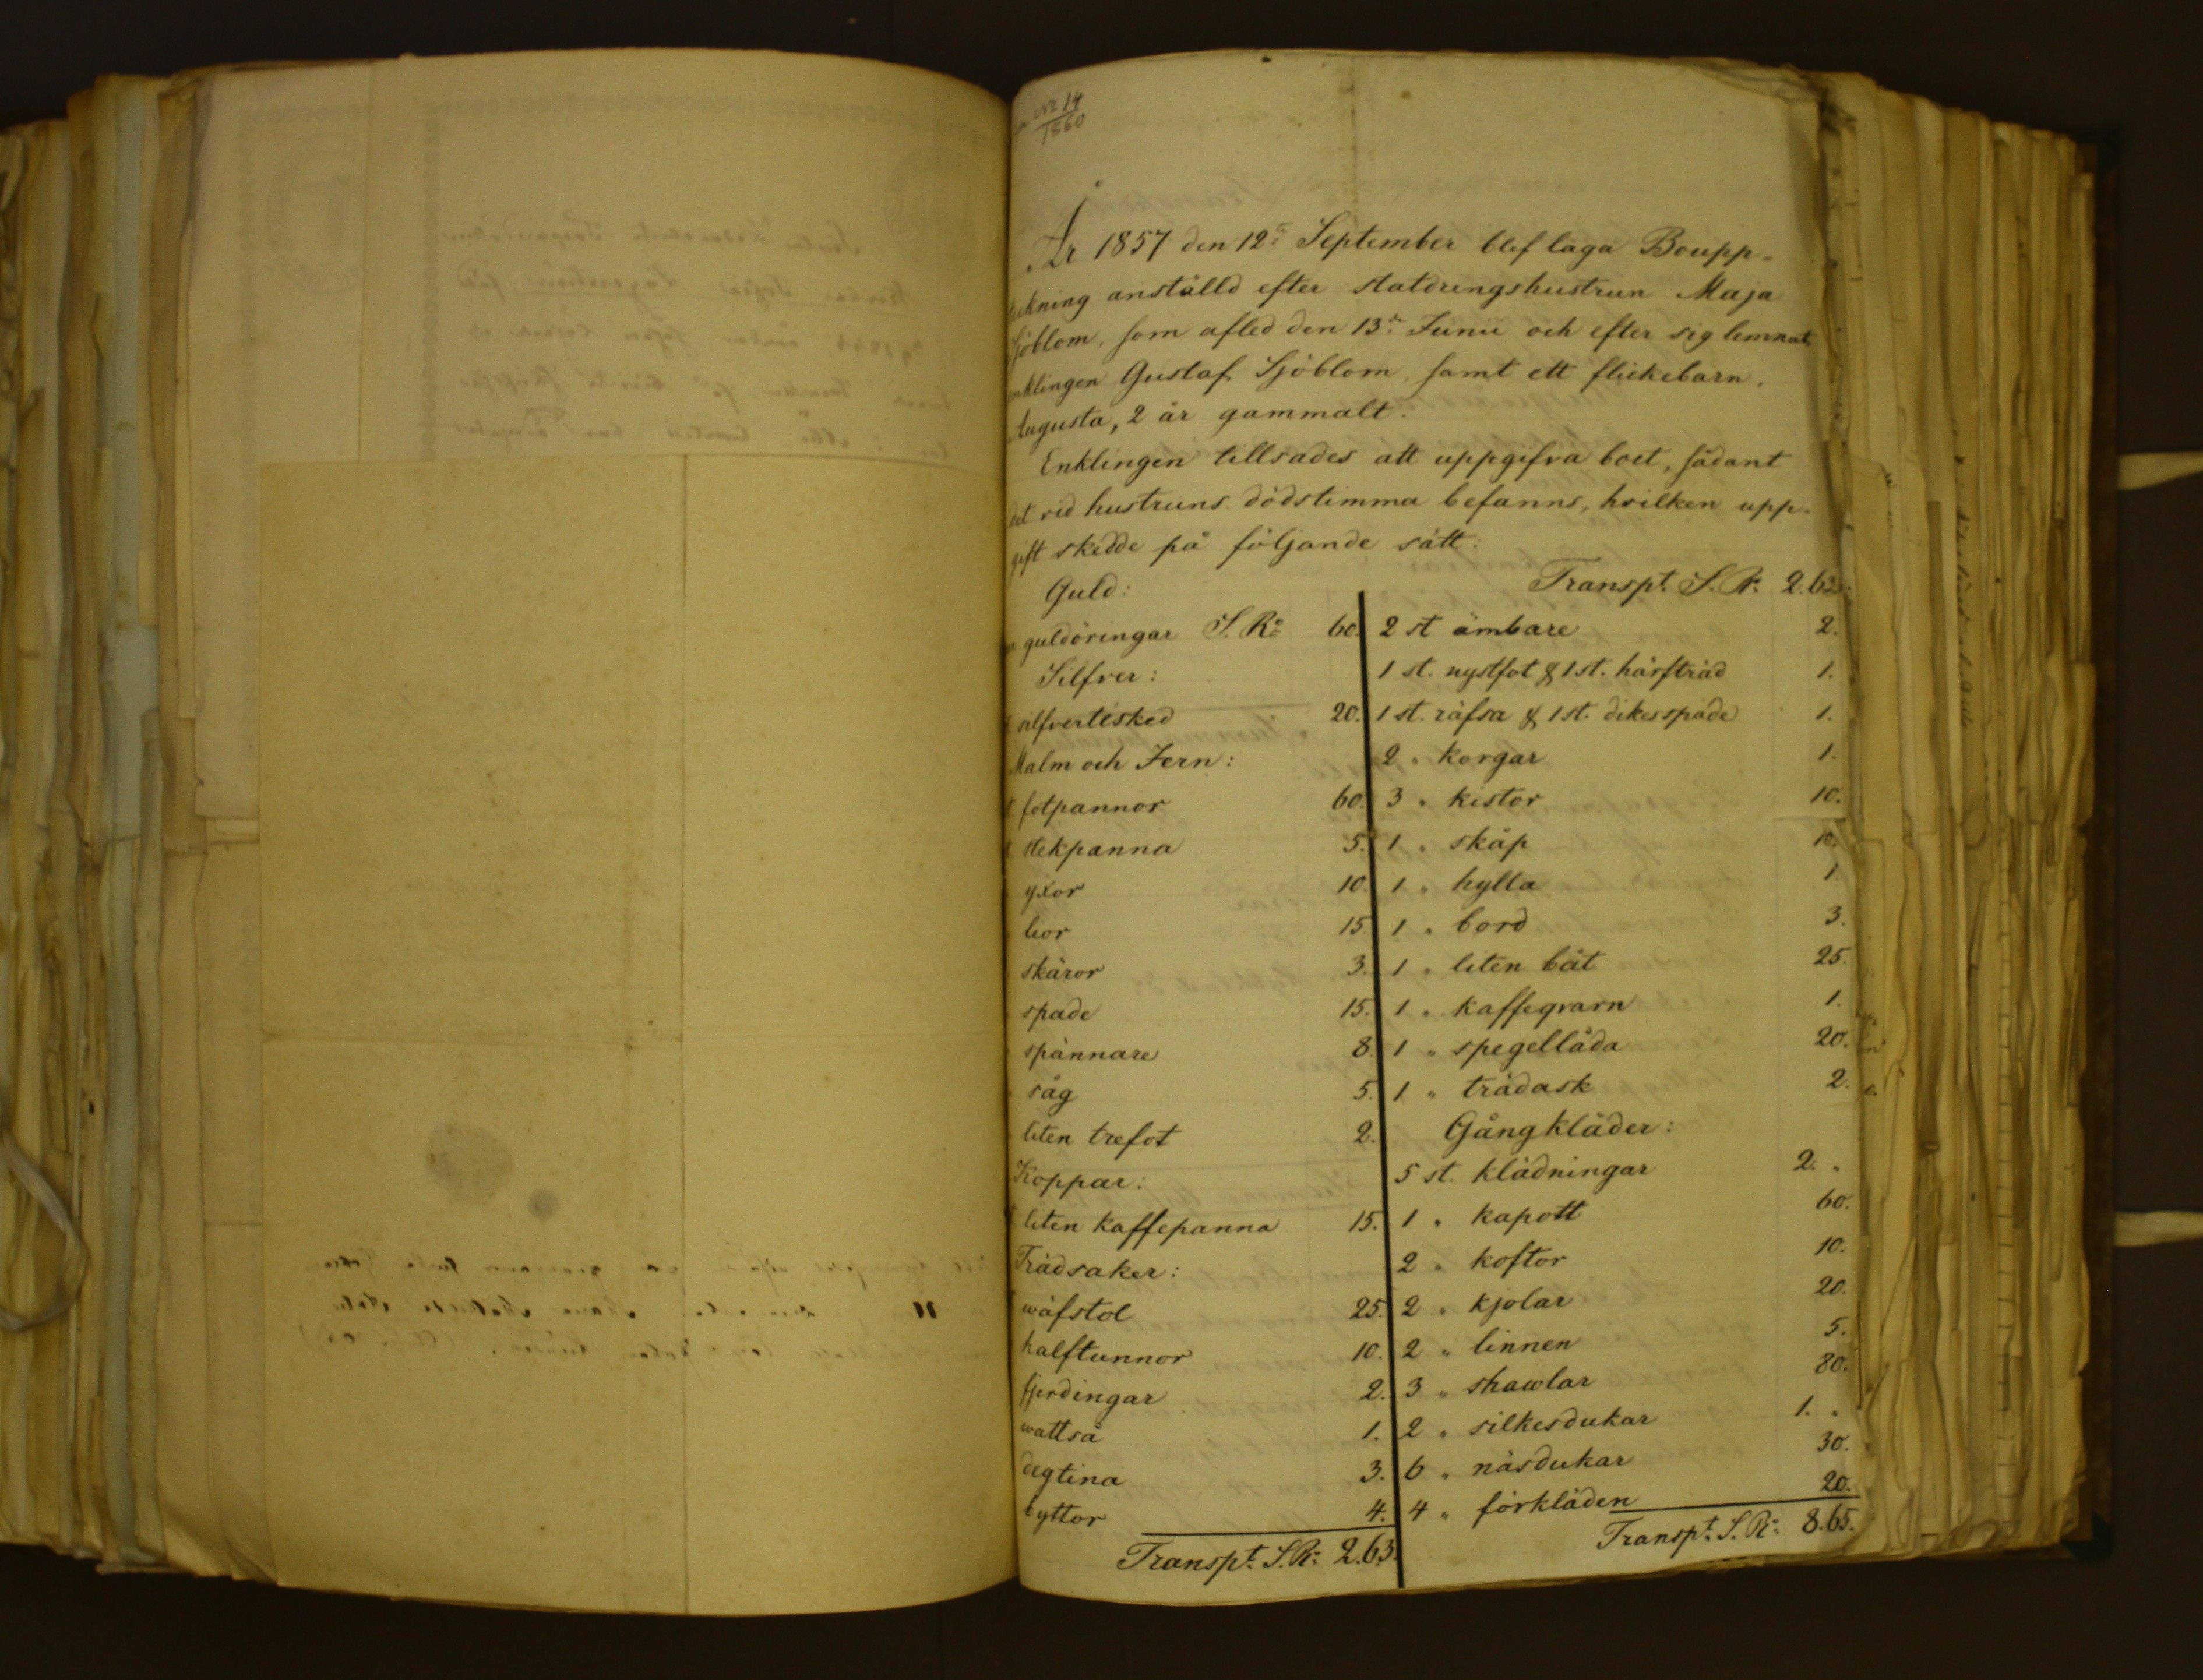 N:o 14
1860
År 1857 den 12:te September blef laga Boupp-
tekning anställd efter statdrengshustrun Maja
Sjöblom, som afled den 13:de Junii och efter sig lemnat
enklingen Gustaf Sjöblom, samt ett flickebarn,
Augusta, 2 år gammalt.
Enklingen tillsades att uppgifva boet, sådant
det vid hustruns dödstimma befanns, hvilken upp-
gift skedde på följande sätt:
Guld:
guldöringar S. R:o 60.
Silfver:
silfvertésked 20.
Malm och Jern:
fotpannor 60.
stekpanna 5.
yxor 10.
lior 15.
skäror 3.
spade 15.
spännare 8.
såg 5.
liten trefot 2.
Koppar:
liten kaffepanna 15.
Trädsaker:
wäfstol 25.
halftunnor 10.
fjerdingar 2.
wattså 1.
degtina 3.
byttor 4.
Transp:t S. R: 2.63.
Transp:t S. R: 2.63.
2 st ämbare 2.
1 st. nystfot & 1 st. härfträd 1.
1 st. räfsa & 1 st. dikesspade 1.
2 " korgar 1.
3 " kistor 10.
1 " skåp 10.
1 " hylla 1.
1 " bord 3.
1 " liten båt 25.
1 " kaffeqvarn 1.
1 " spegellåda 20.
1 " trädask 2.
Gångkläder:
5 st. klädningar 2. "
1 " kapott 60.
2 " koftor 10.
2 " kjolar 20.
2 " linnen 5.
3 " shawlar 80.
2 " silkesdukar 1. "
6 " näsdukar 30.
4 " förkläden 20.
Transp:t S. R: 8.65.